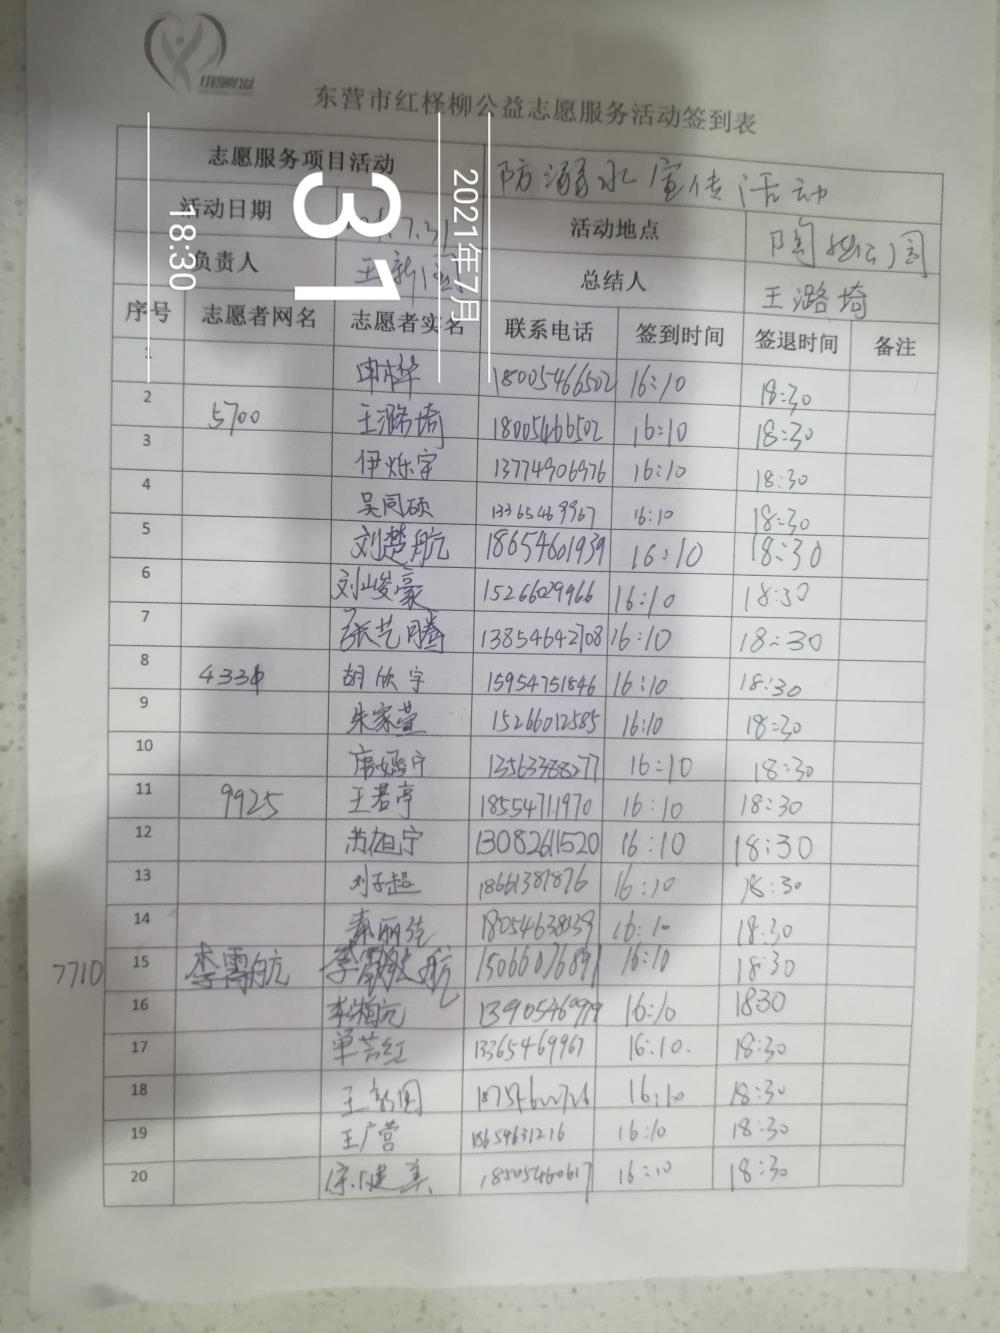 红柽柳公益
东营市红柽柳公益志愿服务活动签到表
志愿服务项目活动 防溺水宣传活动
活动日期 21.7.31 活动地点
负责人 王新国 总结人 王潞埼
序号 志愿者网名 志愿者实名 联系电话 签到时间 签退时间 备注
1 18005466502 16:10 18:30
2 5700 王潞埼 18005466502 16:10 18:30
3 伊烁宇 13774906976 16:10 18:30
4 吴同硕 13365469967 16:10 18:30
5 刘楚航 18654601939 16:10 18:30
6 刘峻豪 15266029966 16:10 18:30
7 张艺腾 13854642708 16:10 18:30
8 胡欣宇 15954751846 16:10 18:30
9 朱家萱 15266012585 16:10 18:30
10 唐嫣宁 13563388277 16:10 18:30
11 9925 王若亭 18554711970 16:10 18:30
12 13082611520 16:10 18:30
13 刘子超 18661387876 16:10 18:30
14 秦丽红 16:10 18:30
7710 15 李雪航 16:10 18:30
16 16:10 1830
17 单芳红 13365469967 16:10. 18:30
18 王新国 16:10 18:30
19 王广营 18654631216 16:10 18:30
20 16:10 18:30
31
2021年7月
18:30